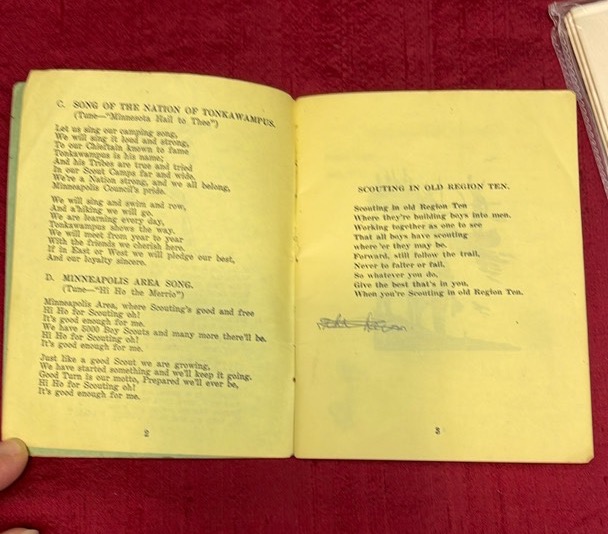 C. SONG OF THE NATION OF TONKAWAMPUS.
(Tune—"Minnesota Hail to Thee")
Let us sing our camping song,
We will sing it loud and strong,
To our Chieftain known to fame
Tonkawampus is his name;
And his Tribes are true and tried
In our Scout Camps far and wide,
We're a Nation strong, and we all belong,
Minneapolis Council's pride.
We will sing and swim and row,
And a'hiking we will go.
We are learning every day,
Tonkawampus shows the way.
We will meet from year to year
With the friends we cherish here,
If in East or West we will pledge our best,
And our loyalty sincere.
D. MINNEAPOLIS AREA SONG.
(Tune—"Hi Ho the Merrio")
Minneapolis Area, where Scouting's good and free
Hi Ho for Scouting oh!
It's good enough for me.
We have 5000 Boy Scouts and many more there'll be.
Hi Ho for Scouting oh!
It's good enough for me.
Just like a good Scout we are growing,
We have started something and we'll keep it going.
Good Turn is our motto, Prepared we'll ever be,
Hi Ho for Scouting oh!
It's good enough for me.
2
SCOUTING IN OLD REGION TEN.
Scouting in old Region Ten
Where they're building boys into men,
Working together as one to see
That all boys have scouting
where'er they may be.
Forward, still follow the trail,
Never to falter or fail,
So whatever you do,
Give the best that's in you,
When you're Scouting in old Region Ten.
3